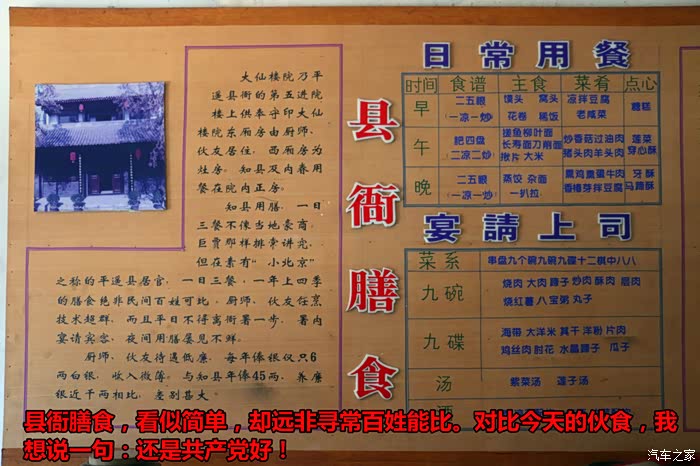 大仙楼院乃平
遥县衙的第五进院
楼上供奉守印大仙
楼院东厢房由厨师、
伙友居住，西厢房为
灶房。知县及内眷用
餐在院内正房。
知县用膳，一日
三餐不像当地豪商、
巨贾那样排索讲究，
但在素有“小北京”
之称的平遥县居官，一日三餐，一年上四季
的膳食绝非民间百姓可比，厨师、伙友任烹
技术超群，而且平日不得离衙署一步，署内
宴请宾客，夜间用膳屡见不鲜。
厨师、伙友待遇低廉，每年俸银仅只6
两白银，收入微薄。与知县年俸45两，养廉
银近千两相比，差别甚大。
县衙膳食
日常用餐
时间 食谱 主食 菜肴 点心
早 二五眼 (一凉一炒) 馍头 窝头 花卷 稀饭 凉拌豆腐 老咸菜 糖糕
午 鲃四盘 二凉二炒 搓鱼柳叶面 长寿面刀削面 揪片 大米 炒香菇过油肉 猪头肉羊头肉 莲菜 穿心酥
晚 二五眼 (一凉一炒) 蒸饺 杂面 一扒拉 熏鸡熏蛋牛肉 香椿芽拌豆腐 牙酥 马蹄酥
宴請上司
菜系 串盘九个碗九碗九碟十二棋中八八
九碗 烧肉 大肉 蹄子 炒肉 酥肉 眉肉
烧红薯 八宝粥 丸子
九碟 海带 太洋米 其干 洋粉 片肉
鸡丝肉 肘花 水晶蹄子 瓜子
汤 紫菜汤 莲子汤
酒
县衙膳食，看似简单，却远非寻常百姓能比。对比今天的伙食，我
想说一句：还是共产党好！
汽车之家